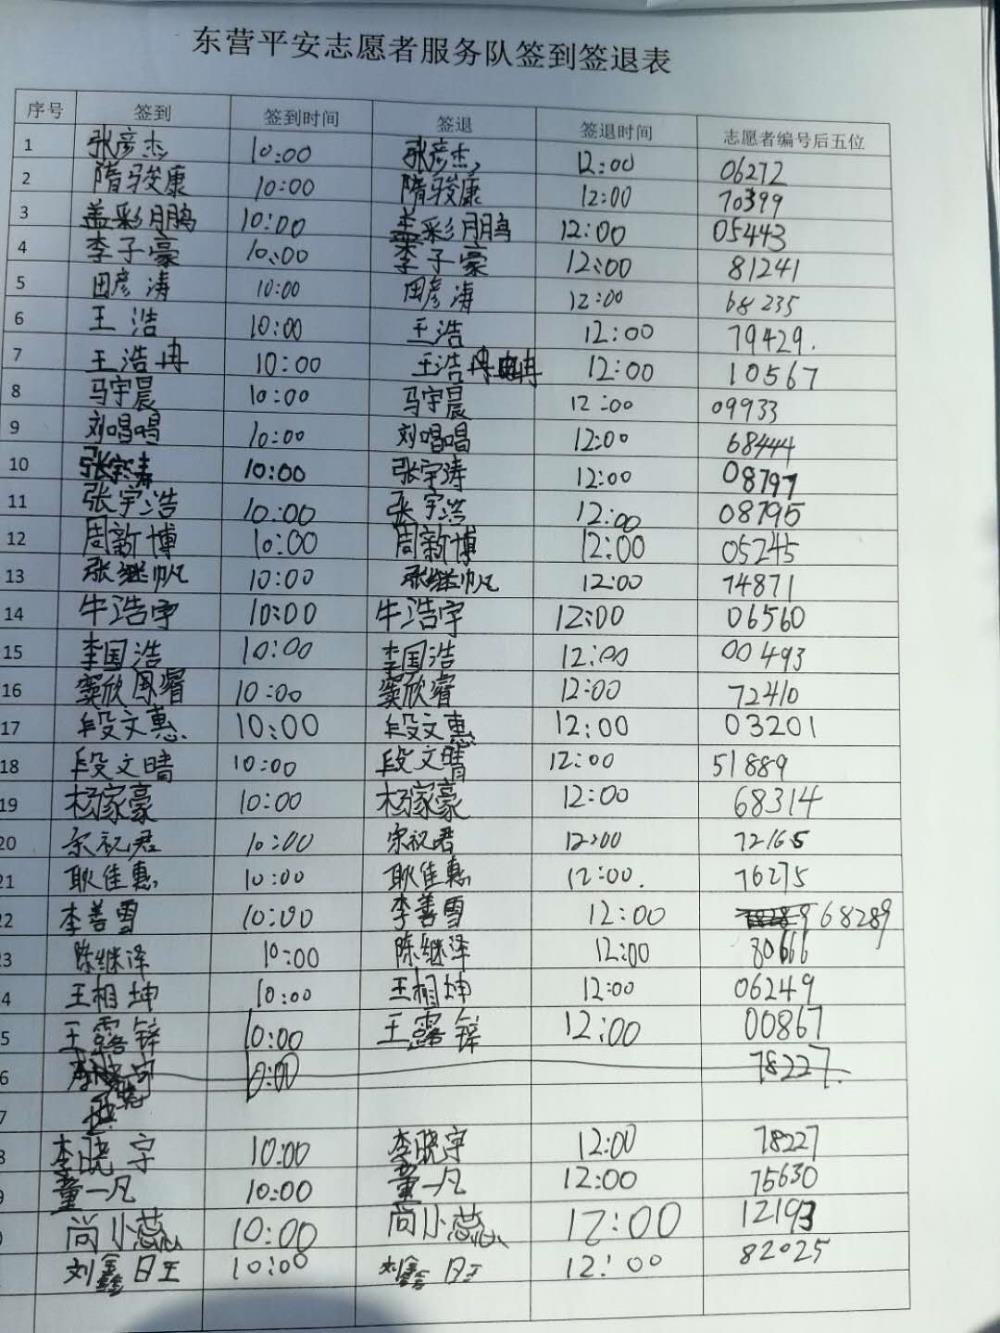 东营平安志愿者服务队签到签退表
序号 签到 签到时间 签退 签退时间 志愿者编号后五位
1 张彦杰 10:00 张彦杰 12:00 06272
2 隋骏康 10:00 隋骏康 12:00 70399
3 盖彩鹏 10:00 盖彩鹏 12:00 05443
4 李子豪 10:00 李子豪 12:00 81241
5 田彦涛 10:00 田彦涛 12:00 68235
6 王浩 10:00 王浩 12:00 79429.
7 王浩冉 10:00 王浩冉 冉 12:00 10567
8 马宇晨 10:00 马宇晨 12:00 09933
9 刘唱唱 10:00 刘唱唱 12:00 68444
10 张宇涛 10:00 张宇涛 12:00 08797
11 张宇浩 10:00 张宇浩 12:00 08795
12 周新博 10:00 周新博 12:00 05245
13 张继帆 10:00 张继帆 12:00 74871
14 牛浩宇 10:00 牛浩宇 12:00 06560
15 李国浩 10:00 李国浩 12:00 00493
16 窦欣睿 10:00 窦欣睿 12:00 72410
17 段文惠 10:00 段文惠 12:00 03201
18 段文晴 10:00 段文晴 12:00 51889
19 杨家豪 10:00 杨家豪 12:00 68314
20 宗祝君 10:00 宗祝君 12:00 72165
21 耿佳惠 10:00 耿佳惠 12:00. 76275
2 李善雪 10:00 李善雪 12:00 68289
3 陈继泽 10:00 陈继泽 12:00 80666
4 王相坤 10:00 王相坤 12:00 06249
5 王露锌 10:00 王露锌 12:00 00867
6 10:00 78227
7
8 李晓宇 10:00 李晓宇 12:00 78227
9 董一凡 10:00 董一凡 12:00 75630
尚小蕊 10:00 尚小蕊 12:00 12193
刘鑫旺 10:00 刘鑫旺 12:00 82025